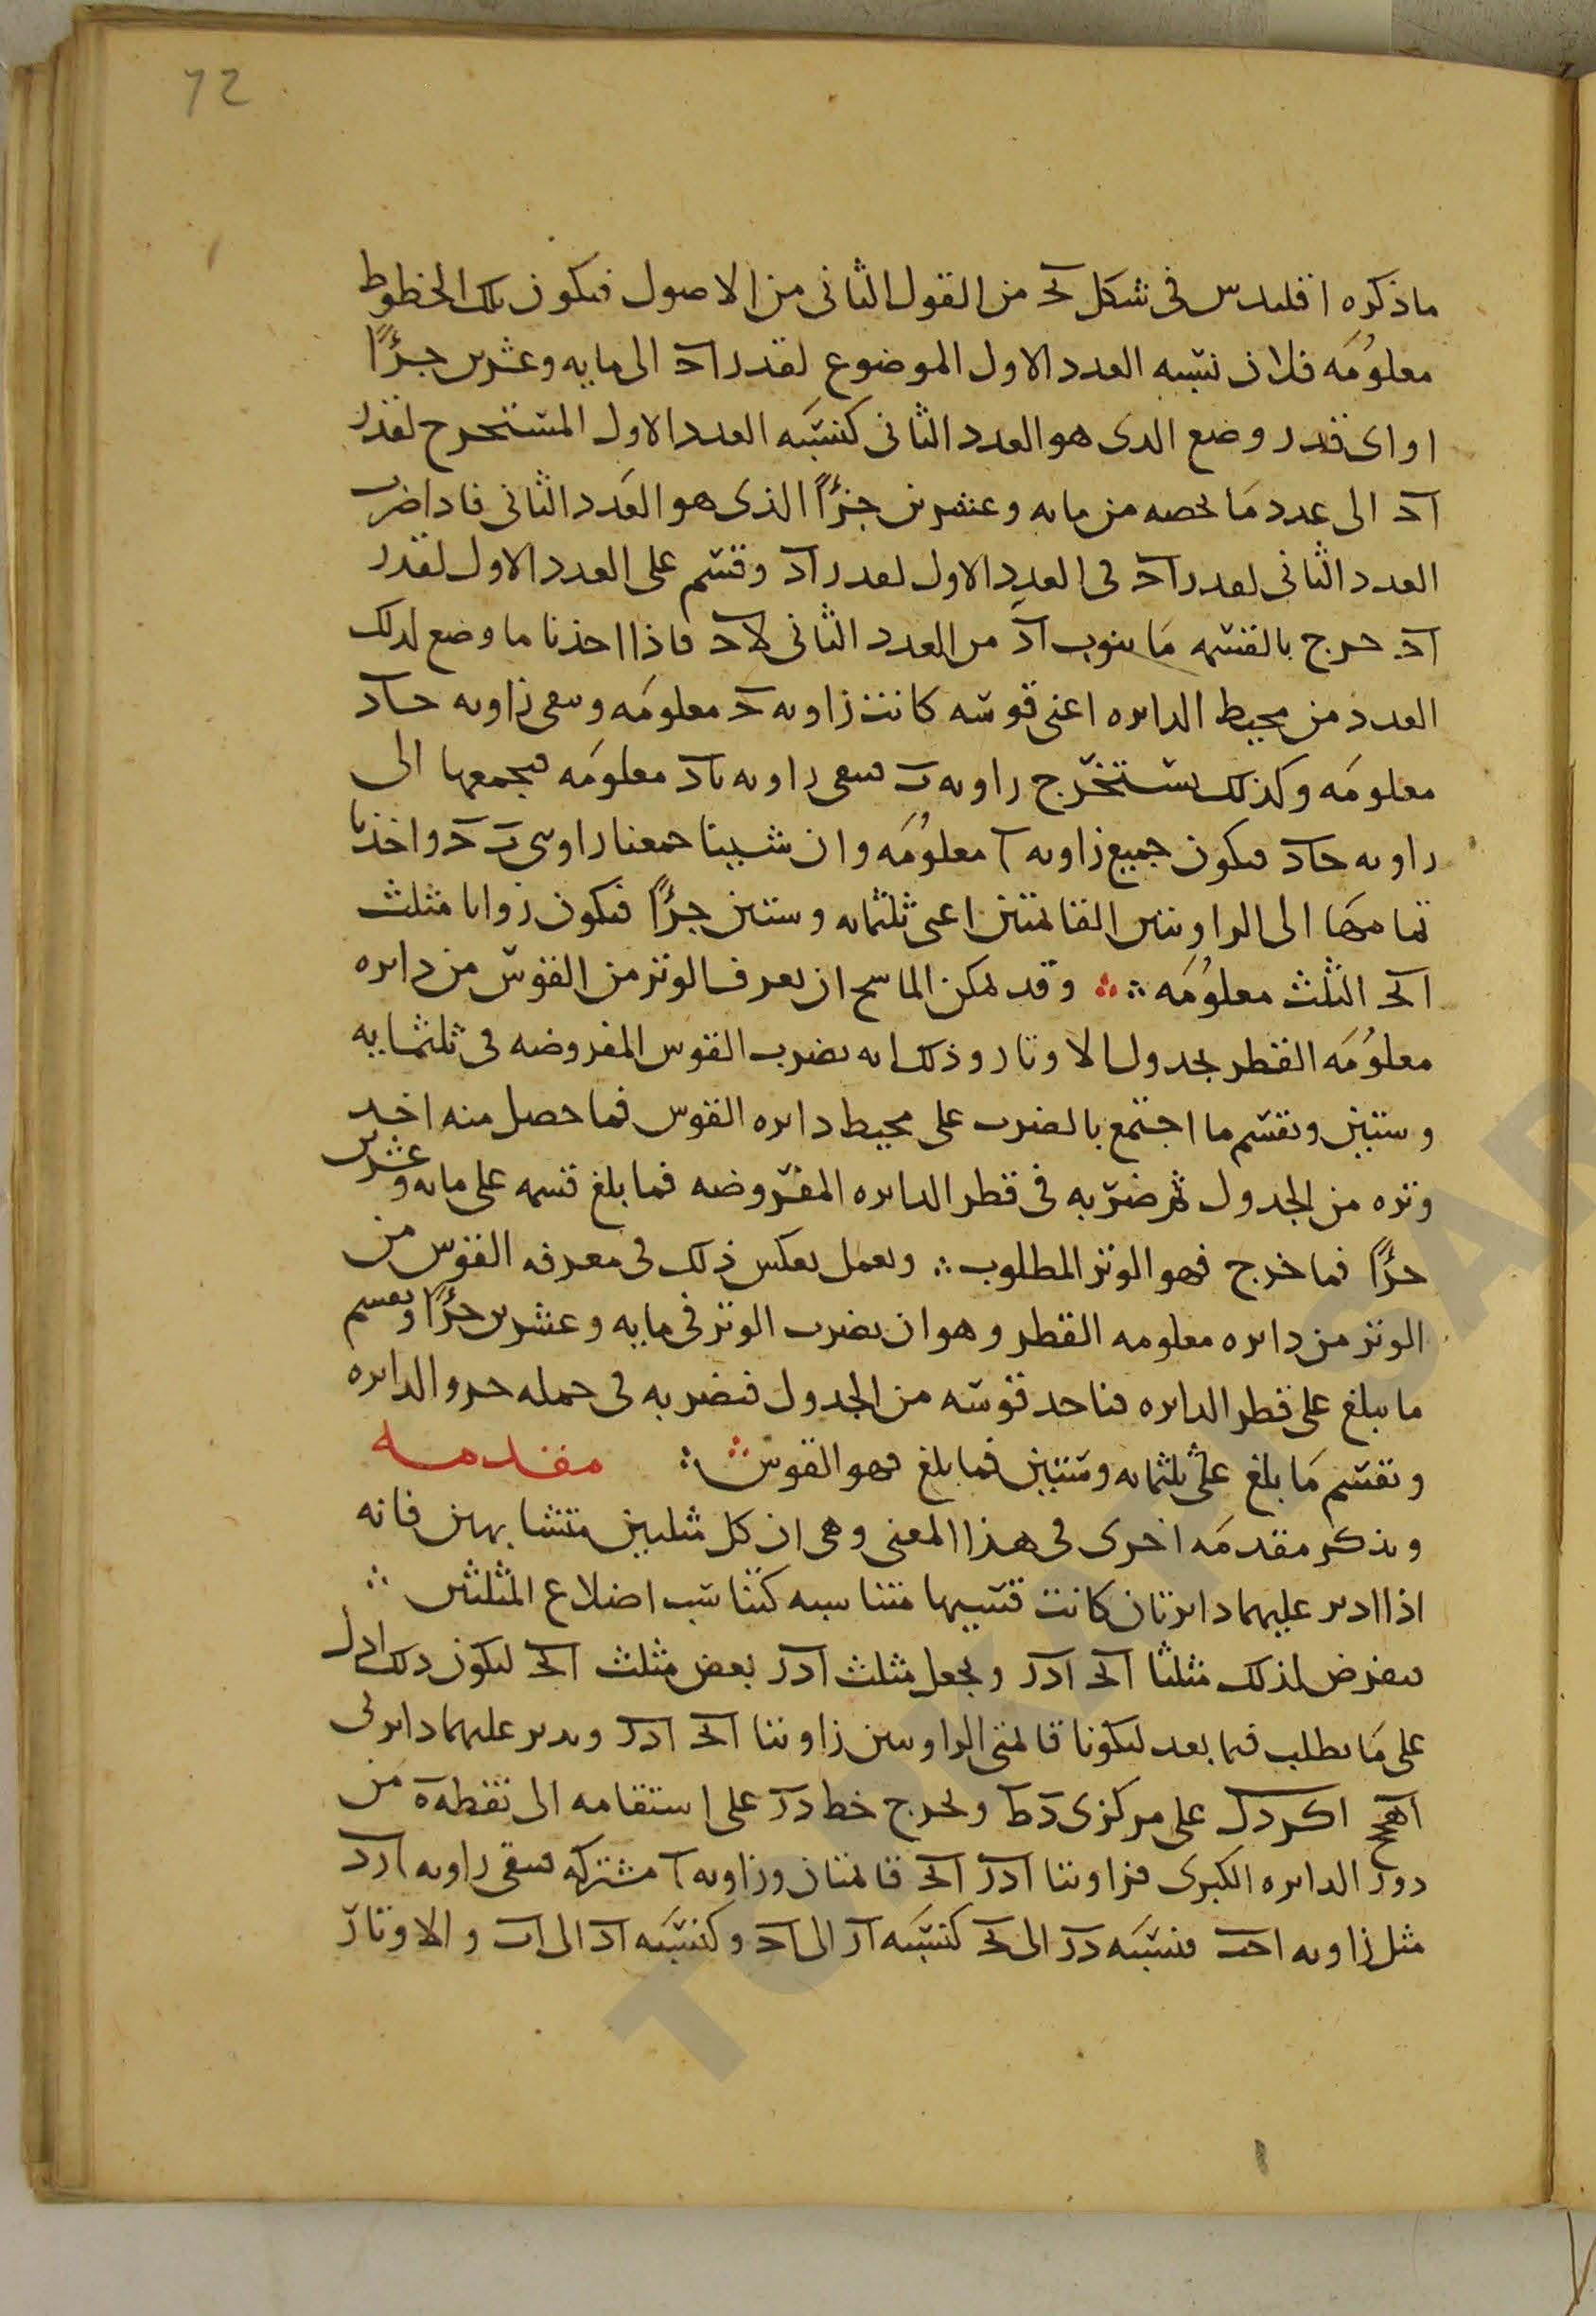 72
ما ذكره اقليدس فى شكل يج من القول الثانى من الاصول فيكون تلك الخطوط
معلومه فلان نسبه العدد الاول الموضوع لقدر اج الى مايه وعشرين جزًا
او اى قدر وضع الدى هو العدد الثانى كنسبه العدد الاول المستخرج لقدر
اد الى عدد ما يخصه من مايه وعشرين جزًا الذى هو العدد الثانى فاذا ضرب
العدد الثانى لقدر اج فى العدد الاول لقدر اد وقسم على العدد الاول لقدر
اج خرج بالقسمه ما ينوب اد من العدد الثانى لاج فاذا اخذنا ما وضع لذلك
العدد من محيط الدايره اعنى قوسه كانت زاويه ج معلومه وبقى زاويه جاد
معلومه وكذلك يستخرج زاويه ب فبقى زاويه باد معلومه فيجمعها الى
زاويه جاد فيكون جميع زاويه ا معلومه وان شينا جمعنا زاويتى ب ج واخذنا
تمامهما الى الزاويتين القائمتين اعنى ثلثمايه وستين جزًا فيكون زوايا مثلث
ابج الثلث معلومه ؞ وقد يمكن الماسح ان يعرف الوتر من القوس من دايره
معلومه القطر بجدول الاوتار وذلك انه يضرب القوس المفروضه فى ثلثمايه
وستين ويقسم ما اجتمع بالضرب على محيط دايره القوس فما حصل منه اخذ
وتره من الجدول ثم ضربه فى قطر الدايره المفروضه فما بلغ قسمه على مايه وعشرين
جزًا فما خرج فهو الوتر المطلوب ؞ ويعمل بعكس ذلك فى معرفه القوس من
الوتر من دايره معلومه القطر وهو ان يضرب الوتر فى مايه وعشرين جزًا ويقسم
ما يبلغ على قطر الدايره فناخذ قوسه من الجدول فنضربه فى جمله جزو الدايره
ونقسم ما بلغ على ثلثمايه وستين فما بلغ فهو القوس ؞ مقدمه
ونذكر مقدمه اخرى فى هذا المعنى وهى ان كل مثلثين متشابهين فانه
اذا ادير عليهما دايرتان كانت قسيهما متناسبه كتناسب اضلاع المثلثين ؞
فيفرض لذلك مثلثا ابج ادز ونجعل مثلث ادز بعض مثلث ابج ليكون ذلك ادل
على ما يطلب فيما بعد ليكونا قائمتى الزاويتين زاويتا ابج ادز وندير عليهما دايرتى
على مركزى ونخرج خط دز على استقامه الى نقطه ه من
دور الدايره الكبرى فزاويتا ادز ابج قائمتان وزاويه ا مشتركه فبقى زاويه ازد
مثل زاويه اجب فنسبه دز الى بج كنسبه از الى اج وكنسبه اد الى اب والاوتار